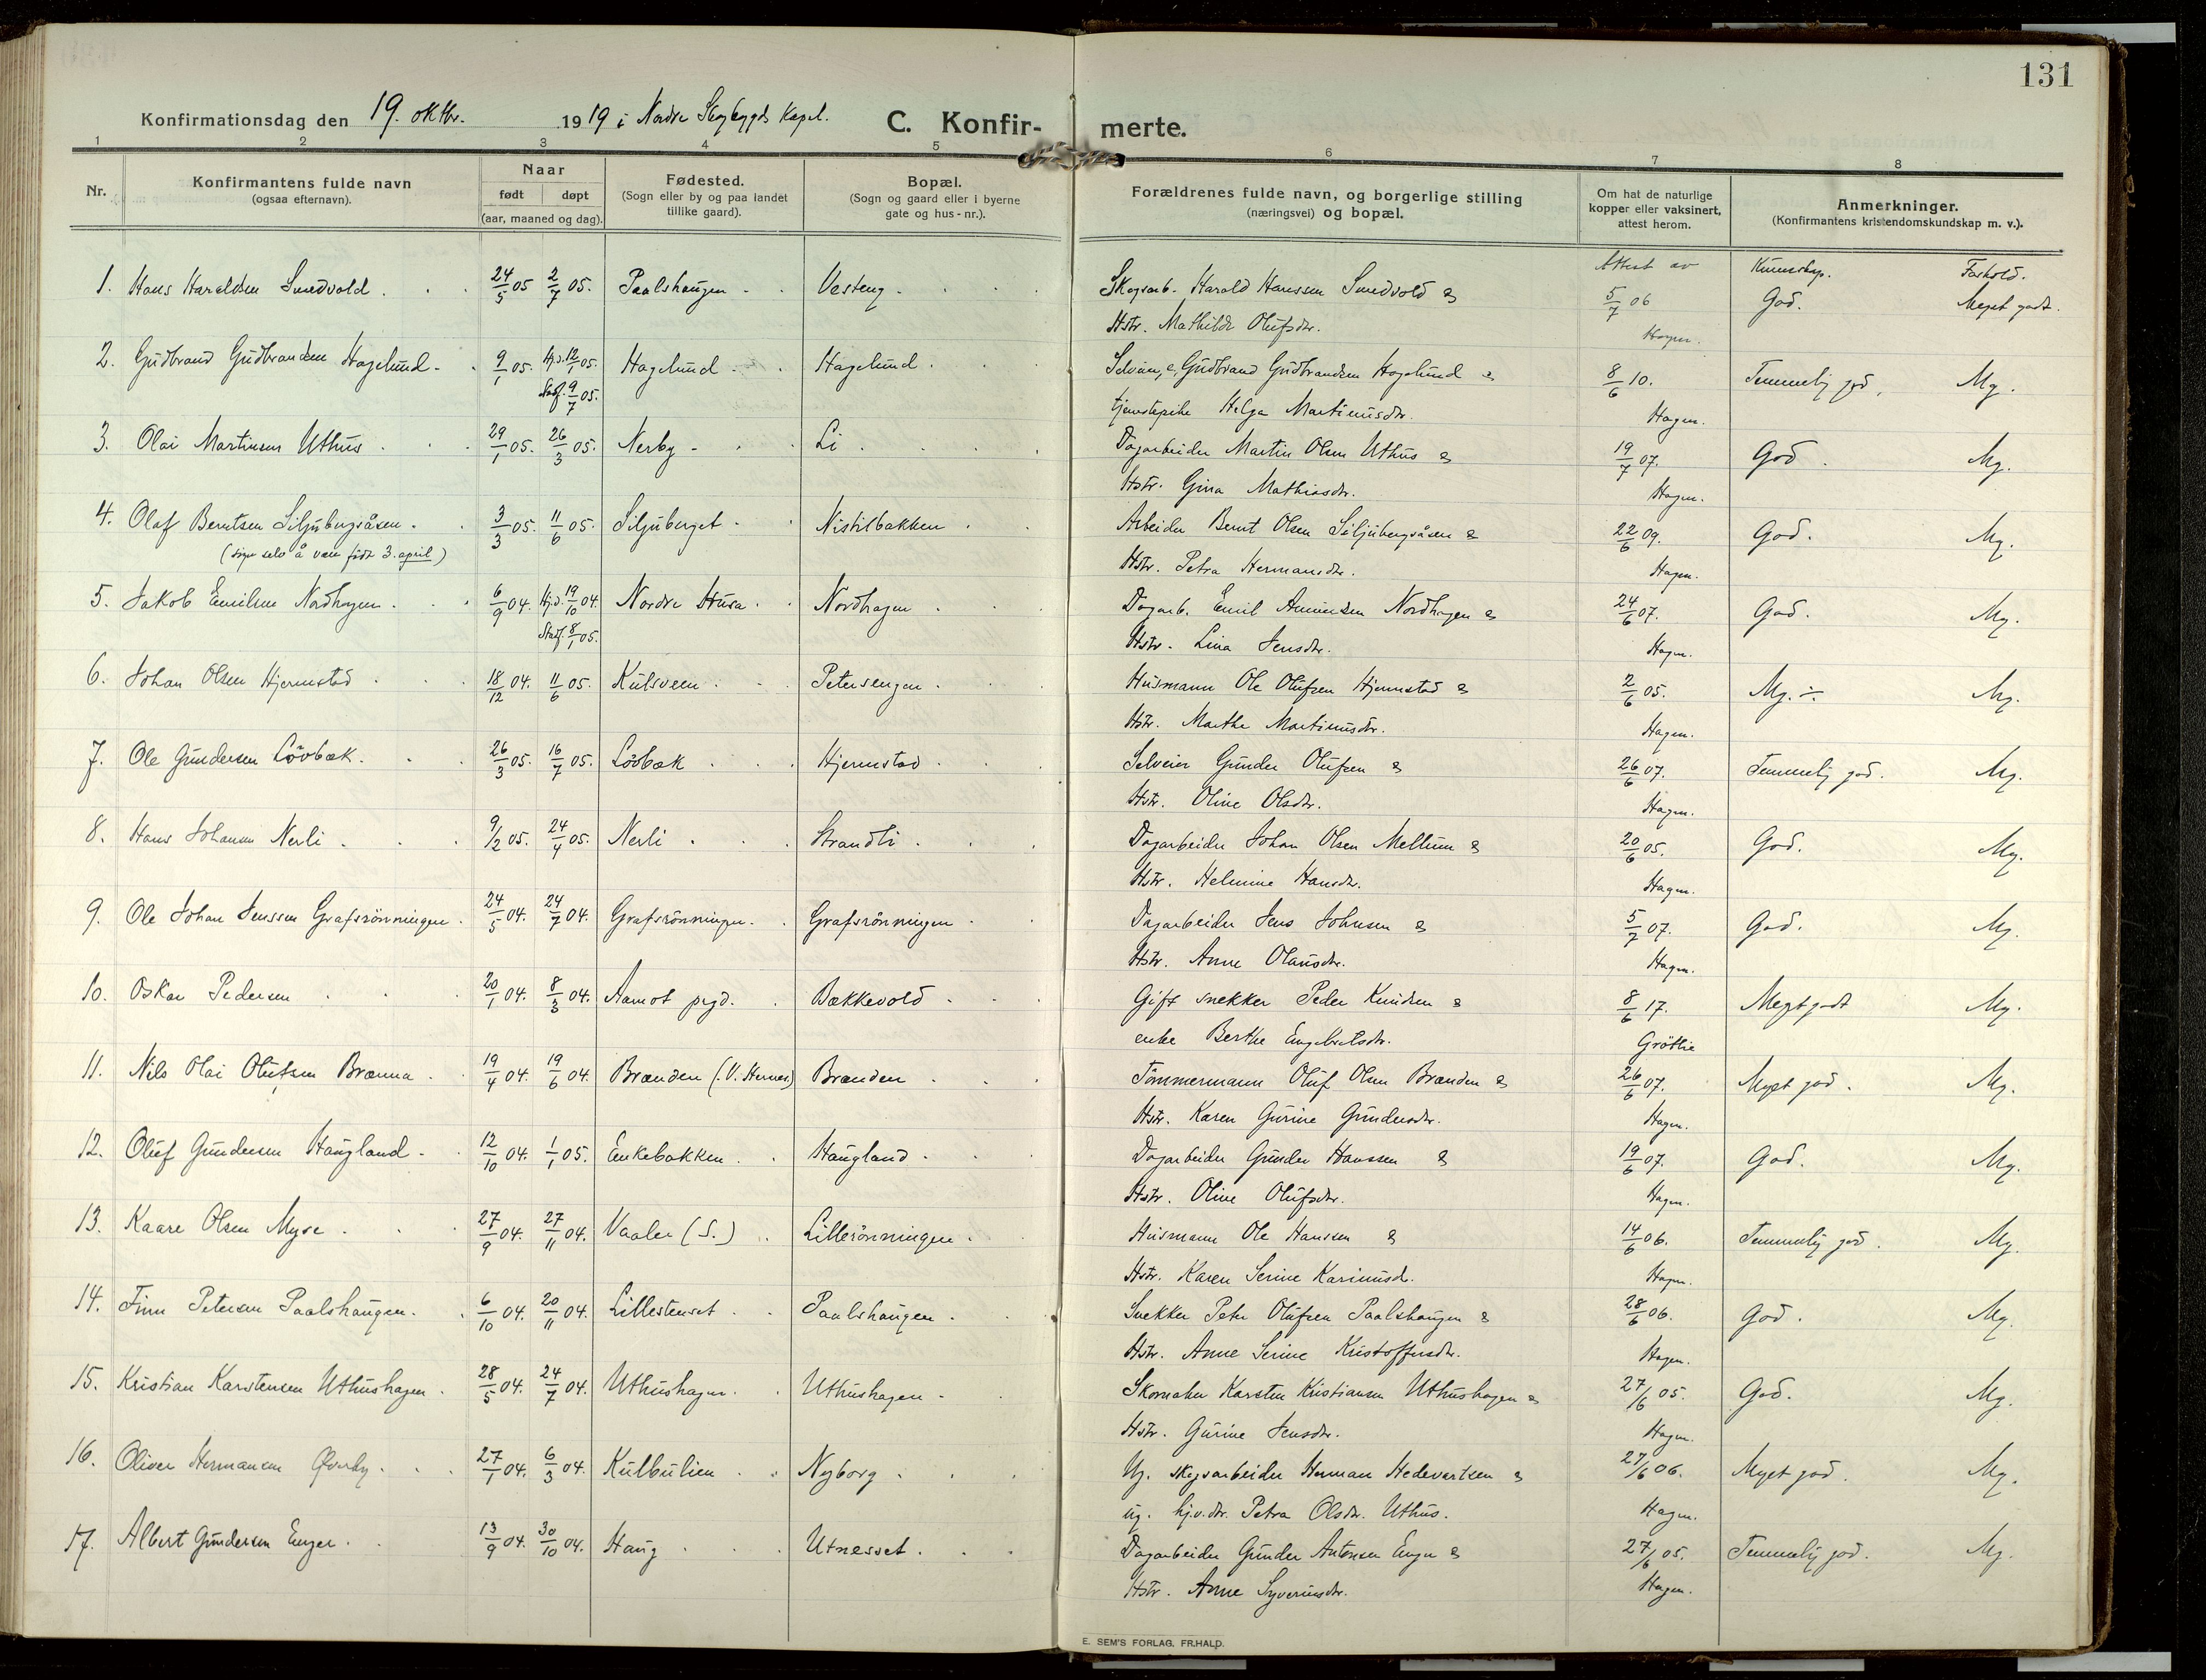 131
Konfirmationsdag den 19. oktbr. 1919 i Nordre Skogbygds Kapel.
C. Konfirmerte.
1 2 3 4 5 6 7 8
Nr.
Konfirmantens fulde navn
(ogsaa efternavn).
Naar
født døpt
(aar, maaned og dag).
Fødested.
(Sogn eller by og paa landet
tillike gaard).
Bopæl.
(Sogn og gaard eller i byerne
gate og hus-nr.).
Forældrenes fulde navn, og borgerlige stilling
(næringsvei) og bopæl.
Om hat de naturlige
kopper eller vaksinert,
attest herom.
Anmerkninger.
(Konfirmantens kristendomskundskap m. v.).
Attest av Kunnskap. Forhold.
1. Hans Haraldsen Smedvold. 24/5 05 2/7 05. Paalshaugen Vesteng. Skogsarb. Harald Hanssen Smedvold & 5/7 06 God. Meget godt.
Hstr. Mathilde Olufsdtr. Hagen.
2. Gudbrand Gudbrandsen Hagelund. 9/1 05. Hj.d. 12/1 05. Hagelund Hagelund. Selveier, e, Gudbrand Gudbrandsen Hagelund & 8/6 10. Temmelig god. Mg.
Stadf. 9/7 05. tjenstepike Helga Martinusdtr. Hagen.
3. Olai Martinsen Uthus. 29/1 05. 26/3 05. Nerby Li Dagarbeider Martin Olsen Uthus & 19/7 07. God. Mg.
Hstr. Gina Mathiasdtr. Hagen.
4. Olaf Berntsen Siljubergsåsen. 3/3 05. 11/6 05. Siljuberget Nistilbakken Arbeider Bernt Olsen Siljubergsåsen & 22/6 09. God. Mg.
(sign selv å være født 3. april) Hstr. Petra Hermansdtr. Hagen.
5. Jakob Emilsen Nordhagen. 6/9 04. Hj.d. 19/10 04. Nordre Husa. Nordhagen Dagarb. Emil Amundsen Nordhagen & 24/6 07. God. Mg.
Stadf. 8/1 05. Hstr. Lina Jensdtr. Hagen.
6. Johan Olsen Hjermstad 18/12 04. 11/6 05. Kulsveen. Petersengen. Husmann Ole Olufsen Hjermstad & 2/6 05. Mg. ÷ Mg.
Hstr. Marthe Martinusdtr. Hagen.
7. Ole Gundersen Lövbæk. 26/3 05. 16/7 05. Lövbæk Hjermstad. Selveier Gunder Olufsen & 26/6 07. Temmelig god. Mg.
Hstr. Oline Olsdtr. Hagen.
8. Hans Johansen Nerli. 9/2 05. 24/4 05. Nerli Strandli. Dagarbeider Johan Olsen Mellum & 20/6 05. God. Mg.
Hstr. Helmine Hansdtr. Hagen.
9. Ole Johan Jenssen Grafsrönningen. 24/5 04. 24/7 04. Grafsrönningen. Grafsrönningen Dagarbeider Jens Johnsen & 5/7 07. God. Mg.
Hstr. Anne Olausdtr. Hagen.
10. Oskar Pedersen 20/1 04. 8/3 04. Aamot prgd. Bakkevold Gift snekker Peder Knudsen & 8/6 17. Meget godt Mg.
enke Berthe Engebretsdtr. Gröttie
11. Nils Olai Olufsen Brænna 19/4 04. 19/6 04. Brænden (V. Hernes) Brænden Tömmermann Oluf Olsen Brænden & 26/6 07. Myet god. Mg.
Hstr. Karen Gurine Gundersdtr. Hagen.
12. Oluf Gundersen Haugland. 12/10 04. 1/1 05. Enkebakken Haugland Dagarbeider Gunder Hanssen & 19/6 07. God. Mg.
Hstr. Oline Olufsdtr. Hagen.
13. Kaare Olsen Myre. 27/9 04. 27/11 04. Vaaler (S.) Lillerönningen. Husmann Ole Hanssen & 14/6 06. Temmelig god. Mg.
Hstr. Karen Serine Karinusd. Hagen.
14. Finn Petersen Paalshaugen. 6/10 04. 20/11 04. Lillestenset Paalshaugen. Snekker Peter Olufsen Paalshaugen & 28/6 06. God. Mg.
Hstr. Anne Serine Kristoffersdtr. Hagen.
15. Kristian Karstensen Uthushagen. 28/5 04. 24/7 04. Uthushagen. Uthushagen Skomaker Karsten Kristiansen Uthushagen & 27/6 05. God. Mg.
Hstr. Gurine Jensdtr. Hagen.
16. Oliver Hermansen Överby. 27/1 04. 6/3 04. Kulbulien Nyborg. Ug. skogsarbeider Herman Hedevartsen & 27/6 06. Myet god. Mg.
ug. hj.v.dtr. Petra Olsdtr. Uthus. Hagen.
17. Albert Gundersen Enger. 13/9 04. 30/10 04. Haug Utnesset. Dagarbeider Gunder Antonsen Enger & 27/6 05. Temmelig god. Mg.
Hstr. Anne Syverinsdtr. Hagen.
E. SEM'S FORLAG. FR.HALD.